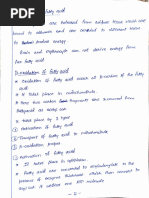 of fatty acid
are released from adipose tissue which are
bound to albumin and are oxidised to
to produce energy
Brain and erythrocyte can not derive energy from
fatty acid
β-oxidation of fatty acid
Oxidation of fatty acid occurs at β-carbon of the fatty
acid
It takes place in mitochondria
two carbon fragments are removed from
as acetyl coA
It takes place by 3 steps
Activation of fatty acid
Transport of fatty acid to mitochondria
β-oxidation proper
Activation of fatty acid
It takes place in cytoplasm
Fatty acid are converted to acyl coA in the
presence of enzyme thiokinase which
of one ATP molecule